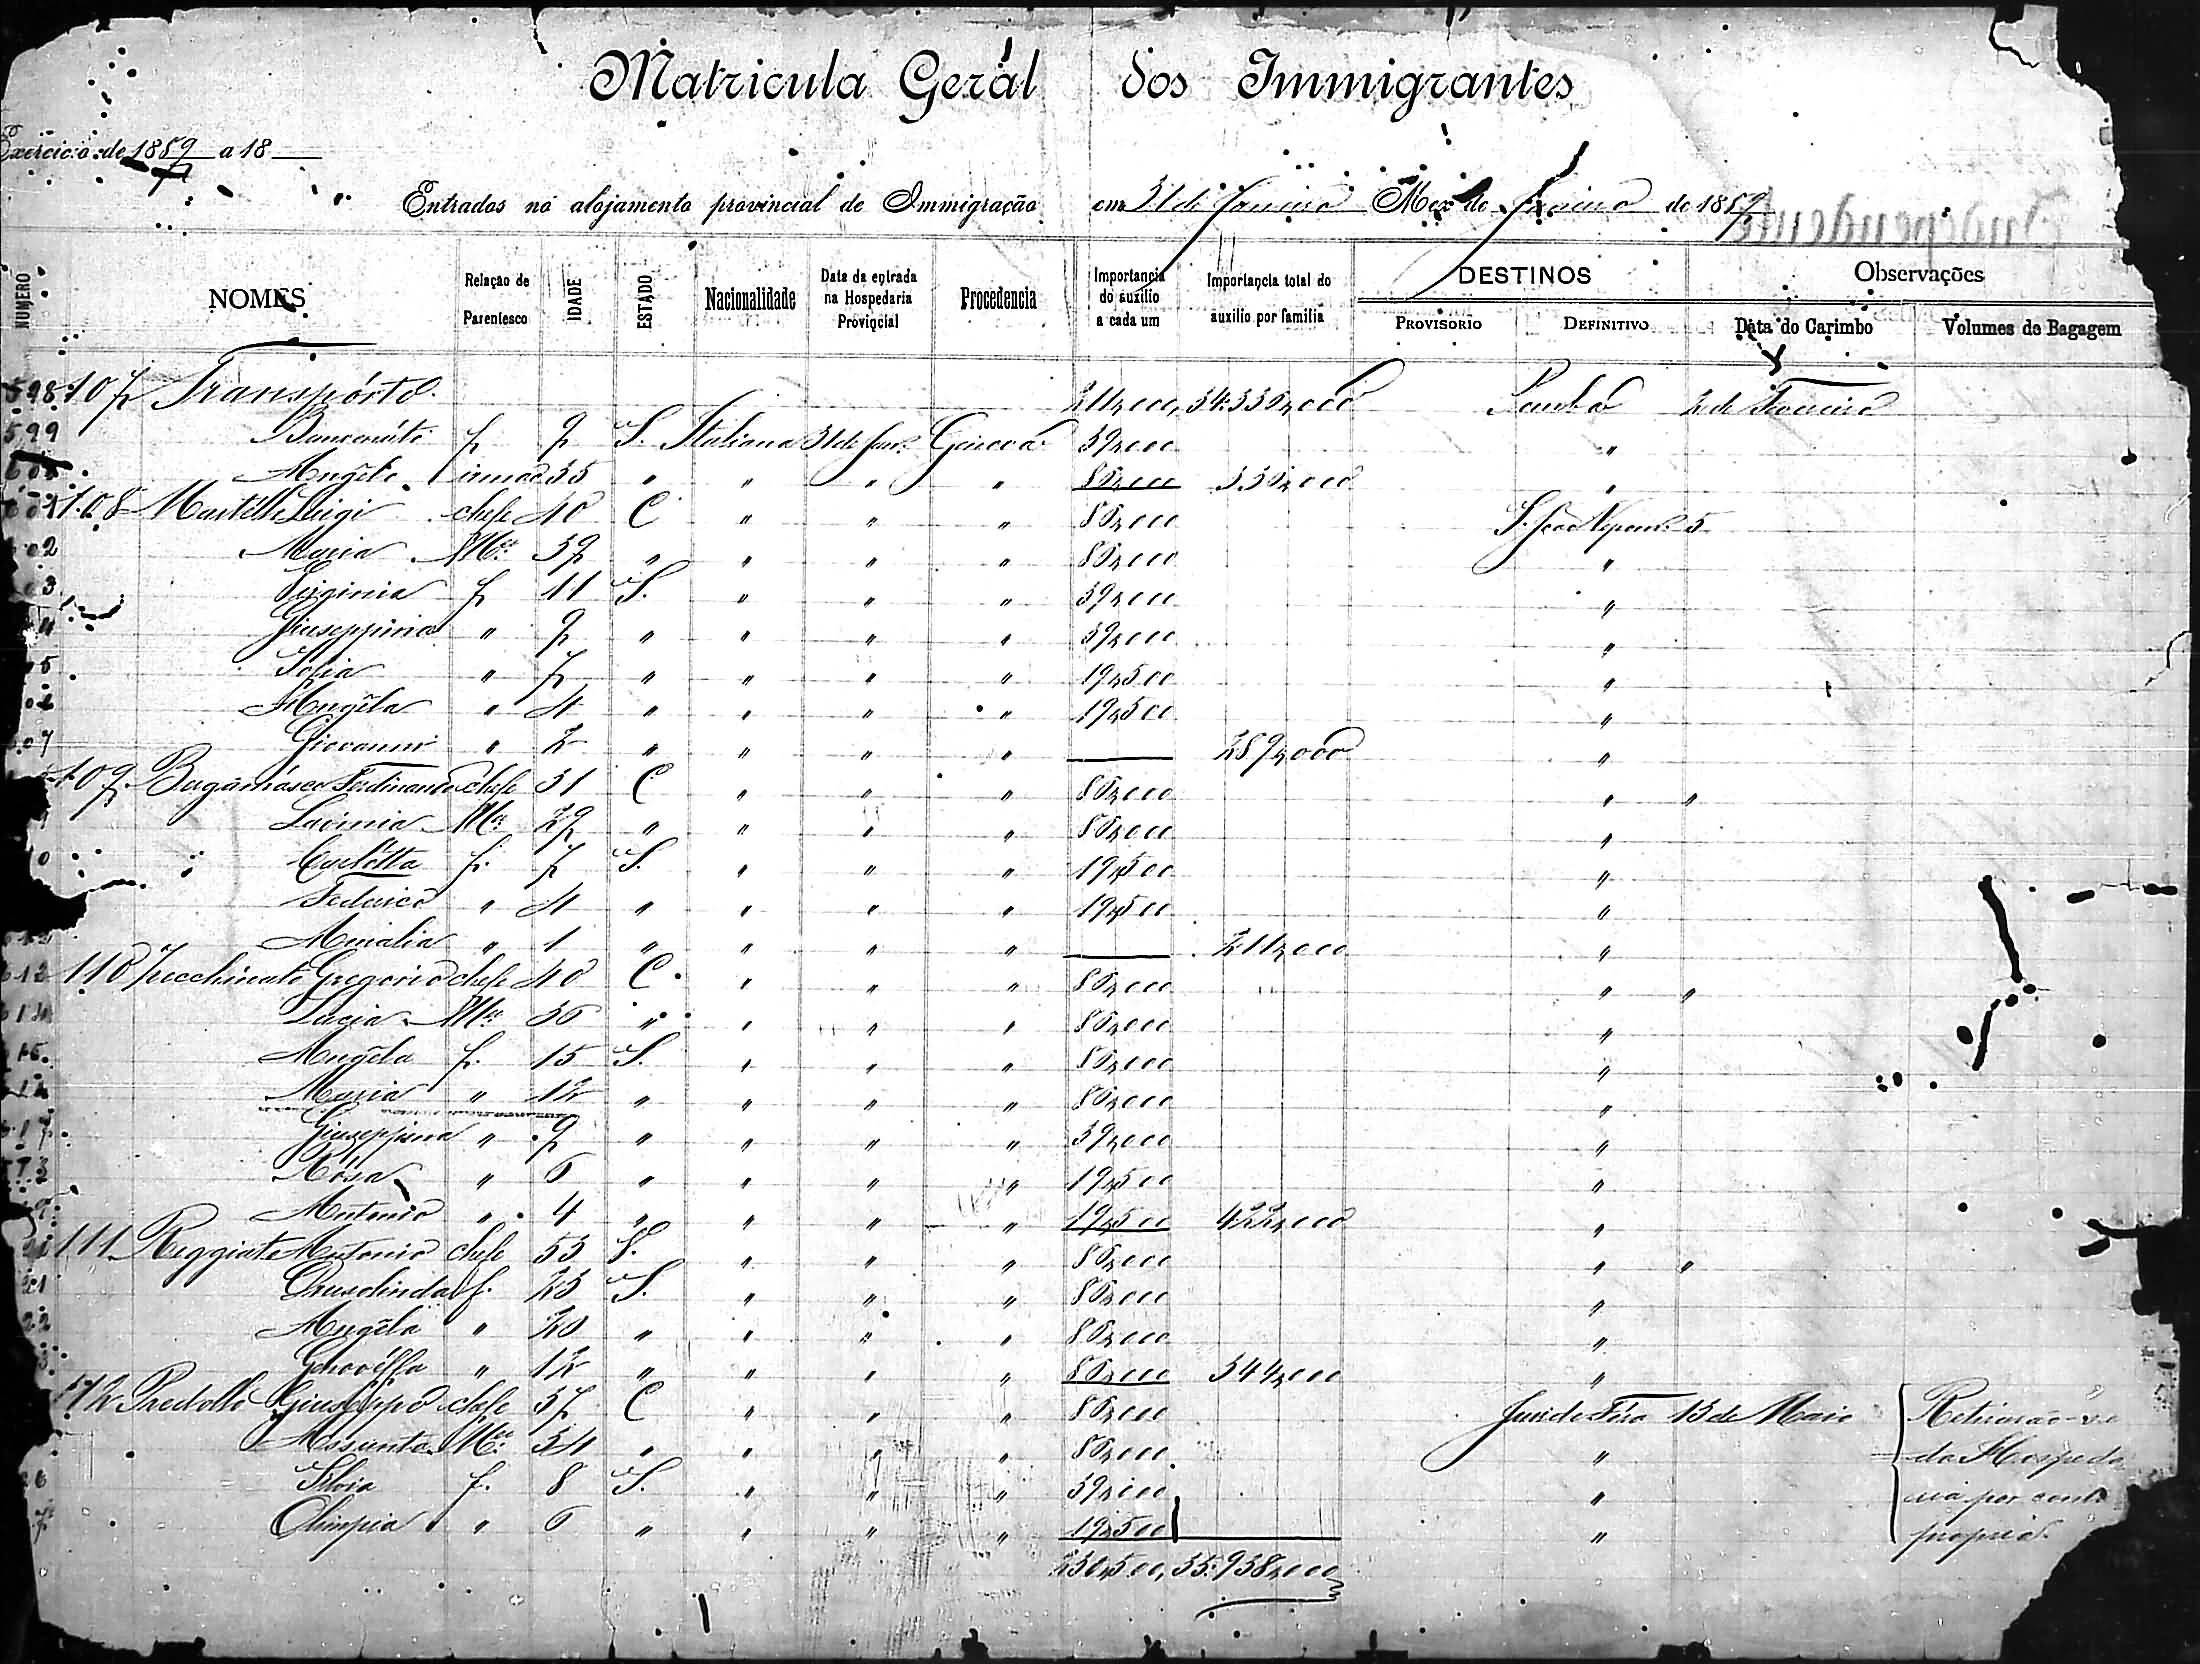 Matricula Geral dos Immigrantes
Exercicio de 1889 a 18
Entrados no alojamento provincial de Immigração em 31 de Janeiro Mez de Janeiro de 1889
NUMERO NOMES Relação de Parentesco IDADE ESTADO Nacionalidade Data da entrada na Hospedaria Provincial Procedencia Importancia do auxilio a cada um Importancia total do auxilio por familia DESTINOS Observações
PROVISORIO DEFINITIVO Data do Carimbo Volumes de Bagagem
598 107 Transpórto 211,000, 34:330,000 Pomba 2 de Fevereiro
599 f 9 S. Italiana 31 de Janº Genova 39,000 "
Angelo irmão 35 " " " " 80,000 330,000 "
108 Martelli Luigi chefe 40 C " " " 80,000 S. João Nepomº 5
02 Maria Mer 39 " " " " 80,000 "
03 Virginia f 11 S. " " " 39,000 "
Giuseppina " 9 " " " " 39,000 "
05 Sofia " 7 " " " " 19,500 "
Angela " 4 " " " " 19,500 "
07 Giovanni " 2 " " " " 289,000 "
109 Bagamásco Ferdinando chefe 31 C " " " 80,000 " "
Lavinia Mer 29 " " " " 80,000 "
Carlótta f. 7 S. " " " 19,500 "
Federico " 4 " " " " 19,500 "
Amalia " 1 " " " " 211,000 "
613 110 Zecchinato Gregorio chefe 40 C " " " 80,000 " "
614 Lucia Mer 36 " " " " 80,000 "
15 Angela f. 15 S. " " " 80,000 "
Maria " 12 " " " " 80,000 "
617 Giuseppina " 9 " " " " 39,000 "
Rosa " 6 " " " " 19,500 "
Antonio " 4 " " " " 19,500 422,000 "
111 Reggiate Antonio chefe 53 S. " " " 80,000 " "
21 f. 23 S. " " " 80,000 "
22 Angela " 20 " " " " 80,000 "
Genovéffa " 12 " " " " 80,000 344,000 "
112 Giuseppe chefe 37 C " " " 80,000 Juiz de Fóra 13 de Maio Retirarão-se
Assunta Mer 34 " " " " 80,000 " da Hospeda
26 Silvia f. 8 S. " " " 39,000 " ria por conta
7 Olimpia " 6 " " " " 19,500 " propria.
230,500, 35:938,000